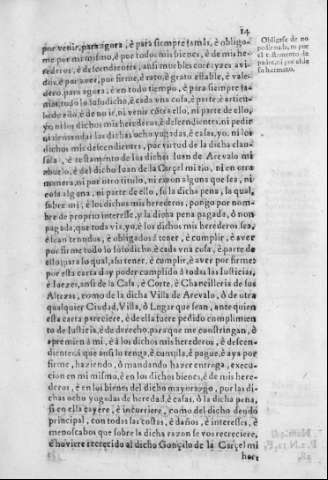 14
por venir, para agora, è para siempre jamàs, è obligo-
me por mi mismo, è por todos mis bienes, è de mis he-
rederos, è descendientes, ansi muebles como rayzes avi-
dos, è por aver, por firme, è rato, è grato estable, è vale-
dero, para agora, è en todo tiempo, è para siempre ja-
màs, todo lo susodicho, è cada vna cosa, è parte, è articu-
lo de ello, è de no ir, ni venir côtra ello, ni parte de ello,
yo, ni los dichos mis herederos, è descendientes, ni pedir
ni demandar las dichas ocho yugadas, è casas, yo, ni los
dichos mis descendientes, por virtud de la dicha clau-
sula, è testamento de los dichos Juan de Arevalo mi
abuelo, è del dicho Juan de la Carçel mi tio, ni en otra
manera, ni por otro titulo, ni razon alguna que sea, ni
cosa alguna, ni parte de ello, so la dicha pena, la qual,
sobre mi, è los dichos mis herederos, pongo por nom-
bre de proprio interesse, y la dicha pena pagada, ò non
pagada, que toda via, yo, è los dichos mis herederos sea,
è sean tenudos, è obligados à tener, è cumplir, è aver
por firme todo lo susodicho, è cada vna cosa, è parte de
ello, para lo qual, assi tener, è cumplir, è aver por firme,
por esta carta doy poder cumplido à todas las Justicias,
è Juezes, ansi de la Casa, è Corte, è Chancilleria de sus
Altezas, como de la dicha Villa de Arevalo, ò de otra
qualquier Ciudad, Villa, ò Lugar que sean, ante quien
esta carta pareciere, è de ella fuere pedido cumplimien-
to de Justicia, è de derecho, para que me constringan, ò
apremien à mi, è à los dichos mis herederos, è descen-
dientes, à que ansi lo tenga, è cumpla, è pague, è aya por
firme, haziendo, ò mandando hazer entrega, execu-
cion en mi mismo, è en los dichos bienes, è de mis here-
deros, è en los bienes del dicho mayorazgo, por las di-
chas ocho yugadas de heredad, è casas, ò la dicha pena,
si en ella cayere, è incurriere, como del dicho deudo
principal, con todas las costas, è daños, è interesses, è
menoscabos que sobre la dicha razon se vos recreciere,
è huviere recrecido al dicho Gonçalo de la Carçel mi
her-
Obligase de no
pedir nada, ni por
el testamento de
padre, ni por el de
su hermano.